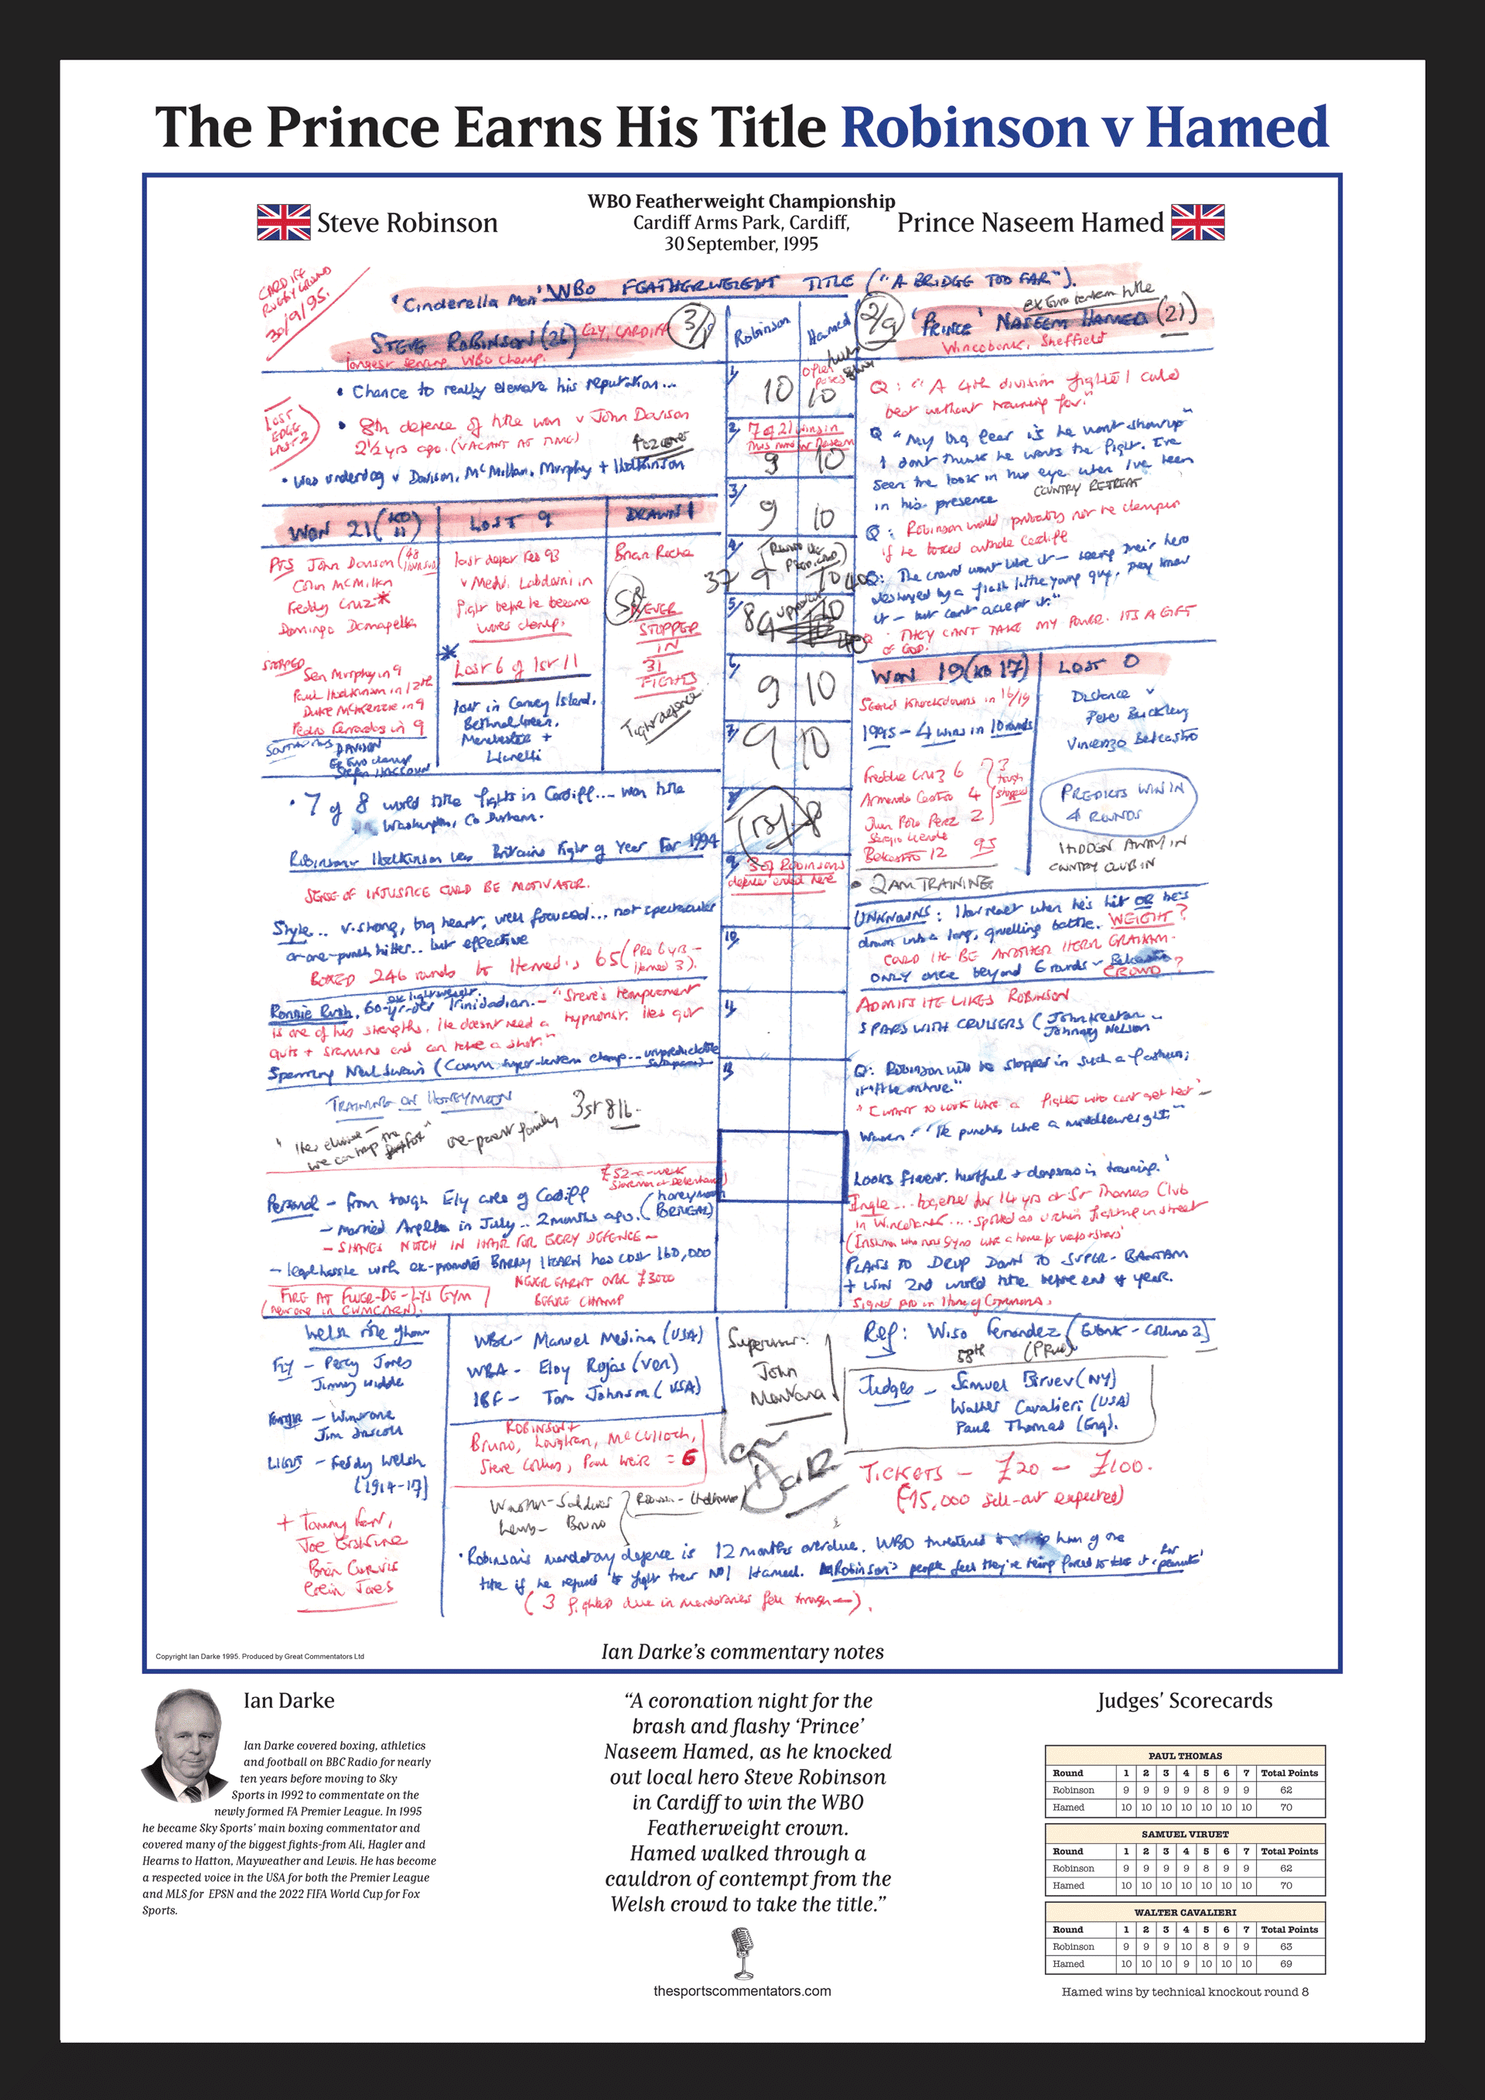 The Prince Earns His Title Robinson v Hamed
WBO Featherweight Championship
Cardiff Arms Park, Cardiff,
30 September, 1995
Steve Robinson
Prince Naseem Hamed
CARDIFF
RUGBY GROUND
30/9/95.
WBO FEATHERWEIGHT TITLE ("A BRIDGE TOO FAR").
'Cinderella Man'
STEVE ROBINSON (26) ELY, CARDIFF
longest serving WBO champ.
3/1
Robinson
Hamed
2/9
'PRINCE' NASEEM HAMED (21)
Wincobank, Sheffield
• Chance to really elevate his reputation...
LOST
EDGE
LAST 2
• 8th defence of title won v John Davison
2½ yrs ago. (VACANT AT TIME)
• Was underdog v Davison, McMillan, Murphy + Hodkinson
WON 21 (KO
LOST 9
DRAWN 1
PTS John Davison
Colin McMillan
Freddy Cruz*
Domingo Damigella
STOPPED
Sean Murphy in 9
Paul Hodkinson in 12th
Duke McKenzie in 9
Pedro Ferradas in 9
DAVISON
lost
Feb 93
v Medi. Labdouni in
fight before he became
world champ.
* Lost 6 of 1st 11
lost in Canvey Island,
Bethnal Green,
Manchester +
Llanelli
Brian Roche
NEVER
STOPPED
IN
31
FIGHTS
Tight defence
• 7 of 8 world title fights in Cardiff... won title
in Washington, Co Durham.
Robinson v Hodkinson was Britain's Fight of Year For 1994
SENSE OF INJUSTICE COULD BE MOTIVATOR.
Style... v. strong, big heart, well focused... not spectacular
or one-punch hitter.. but effective
BOXED 246 rounds to Hamed's 65 (Pro 6 yrs -
Hamed 3).
Ronnie Rush, 60-yr-old Trinidadian. - "Steve's temperament
is one of his strengths. He doesn't need a hypnotist. He's got
guts + stamina and can take a shot."
Sparring Neil Swain (Comm super-bantam champ... unpredictable
TRAINING ON HONEYMOON
one-parent family
Personal - from tough Ely area of Cardiff
£52-a-week
Storeman at Debenhams
- married Angela in July.. 2 months ago. (honeymoon
- SHAVES NOTCH IN HAIR FOR EVERY DEFENCE -
- legal hassle with ex-promoter BARRY HEARN has cost 160,000
NEVER EARNT OVER £3000
BEFORE CHAMP
FIRE AT FLEUR-DE-LYS GYM
(new one in CWMCARN).
1/ 10 10
2/ 7 of 21 wins in
9 10
3/ 9 10
4/ 37 9 10 40
5/
6/ 9 10
7/ 9 10
9/ 3 of Robinson's
defences ended here
10/
11/
Q: "A 4th division fighter I could
beat without training for."
Q "My big fear is he wont show up
I dont think he wants the fight. I've
seen the look in his eye when I've been
in his presence
COUNTRY RETREAT
Q: Robinson would probably not be champion
if he boxed outside Cardiff
Q: The crowd wont like it - seeing their hero
destroyed by a flash little young guy, they know
it - but cant accept it."
Q THEY CAN'T TAKE MY POWER. ITS A GIFT
OF GOD.
WON 19 (KO 17)
LOST 0
Scored knockdowns in 16/19
1995 - 4 wins in 10 rounds
Freddie Cruz 6
Armando Castro 4
Juan Polo Perez 2
Sergio Liendo
Belcastro 12 95
3
tough
stopped
Distance v
Peter Buckley
Vincenzo Belcastro
PREDICTS WIN IN
4 ROUNDS
HIDDEN AWAY IN
COUNTRY CLUB IN
• 2AM TRAINING
UNKNOWNS: How react when he's hit OR he's
drawn into a long, gruelling battle. WEIGHT?
COULD HE BE ANOTHER HEROL GRAHAM.
ONLY once beyond 6 rounds - Belcastro
CROWD?
ADMITS HE LIKES ROBINSON
SPARS WITH CRUISERS (John Keeton
Johnny Nelson
Q: Robinson will be stopped in such a fashion;
"I WANT TO LOOK LIKE A fighter who cant get beat" -
Warren: "He punches like a middleweight"
Looks fluent, hurtful + dangerous in training.
Ingle... together for 14 yrs at St Thomas Club
in Wincobank.... spotted as urchin fighting in street
PLANS TO DROP DOWN TO SUPER-BANTAM
+ WIN 2nd world title before end of year.
Signed pro in House of Commons.
Fly - Percy Jones
Jimmy Wilde
- Winstone
Jim Driscoll
LIGHT - Freddy Welsh
(1914-17)
+ Tommy Farr,
Joe Erskine
Brian Curvis
Colin Jones
WBC - Manuel Medina (USA)
WBA - Eloy Rojas (Ven)
IBF - Tom Johnson (USA)
ROBINSON +
Bruno, Loughran, McCulloch,
Steve Collins, Paul Weir = 6
Lewis - Bruno
Supervisor:
John
Montana
Ref: Wiso Fernandez (Eubank - Collins 2)
58th
Judges - Samuel Viruet (NY)
Walter Cavalieri (USA)
Paul Thomas (Eng).
TICKETS - £20 - £100.
(15,000 sell-out expected)
• Robinson's mandatory defence is 12 months overdue. WBO threatened to strip him of the
title if he refused to fight their NO1 Hamed. Robinson's people feel they're being forced to take it for 'peanuts'
Ian Darke's commentary notes
Copyright Ian Darke 1995. Produced by Great Commentators Ltd
Ian Darke
Ian Darke covered boxing, athletics
and football on BBC Radio for nearly
ten years before moving to Sky
Sports in 1992 to commentate on the
newly formed FA Premier League. In 1995
he became Sky Sports' main boxing commentator and
covered many of the biggest fights-from Ali, Hagler and
Hearns to Hatton, Mayweather and Lewis. He has become
a respected voice in the USA for both the Premier League
and MLS for EPSN and the 2022 FIFA World Cup for Fox
Sports.
"A coronation night for the
brash and flashy 'Prince'
Naseem Hamed, as he knocked
out local hero Steve Robinson
in Cardiff to win the WBO
Featherweight crown.
Hamed walked through a
cauldron of contempt from the
Welsh crowd to take the title."
thesportscommentators.com
Judges' Scorecards
PAUL THOMAS
Round 1 2 3 4 5 6 7 Total Points
Robinson 9 9 9 9 8 9 9 62
Hamed 10 10 10 10 10 10 10 70
SAMUEL VIRUET
Round 1 2 3 4 5 6 7 Total Points
Robinson 9 9 9 9 8 9 9 62
Hamed 10 10 10 10 10 10 10 70
WALTER CAVALIERI
Round 1 2 3 4 5 6 7 Total Points
Robinson 9 9 9 10 8 9 9 63
Hamed 10 10 10 9 10 10 10 69
Hamed wins by technical knockout round 8